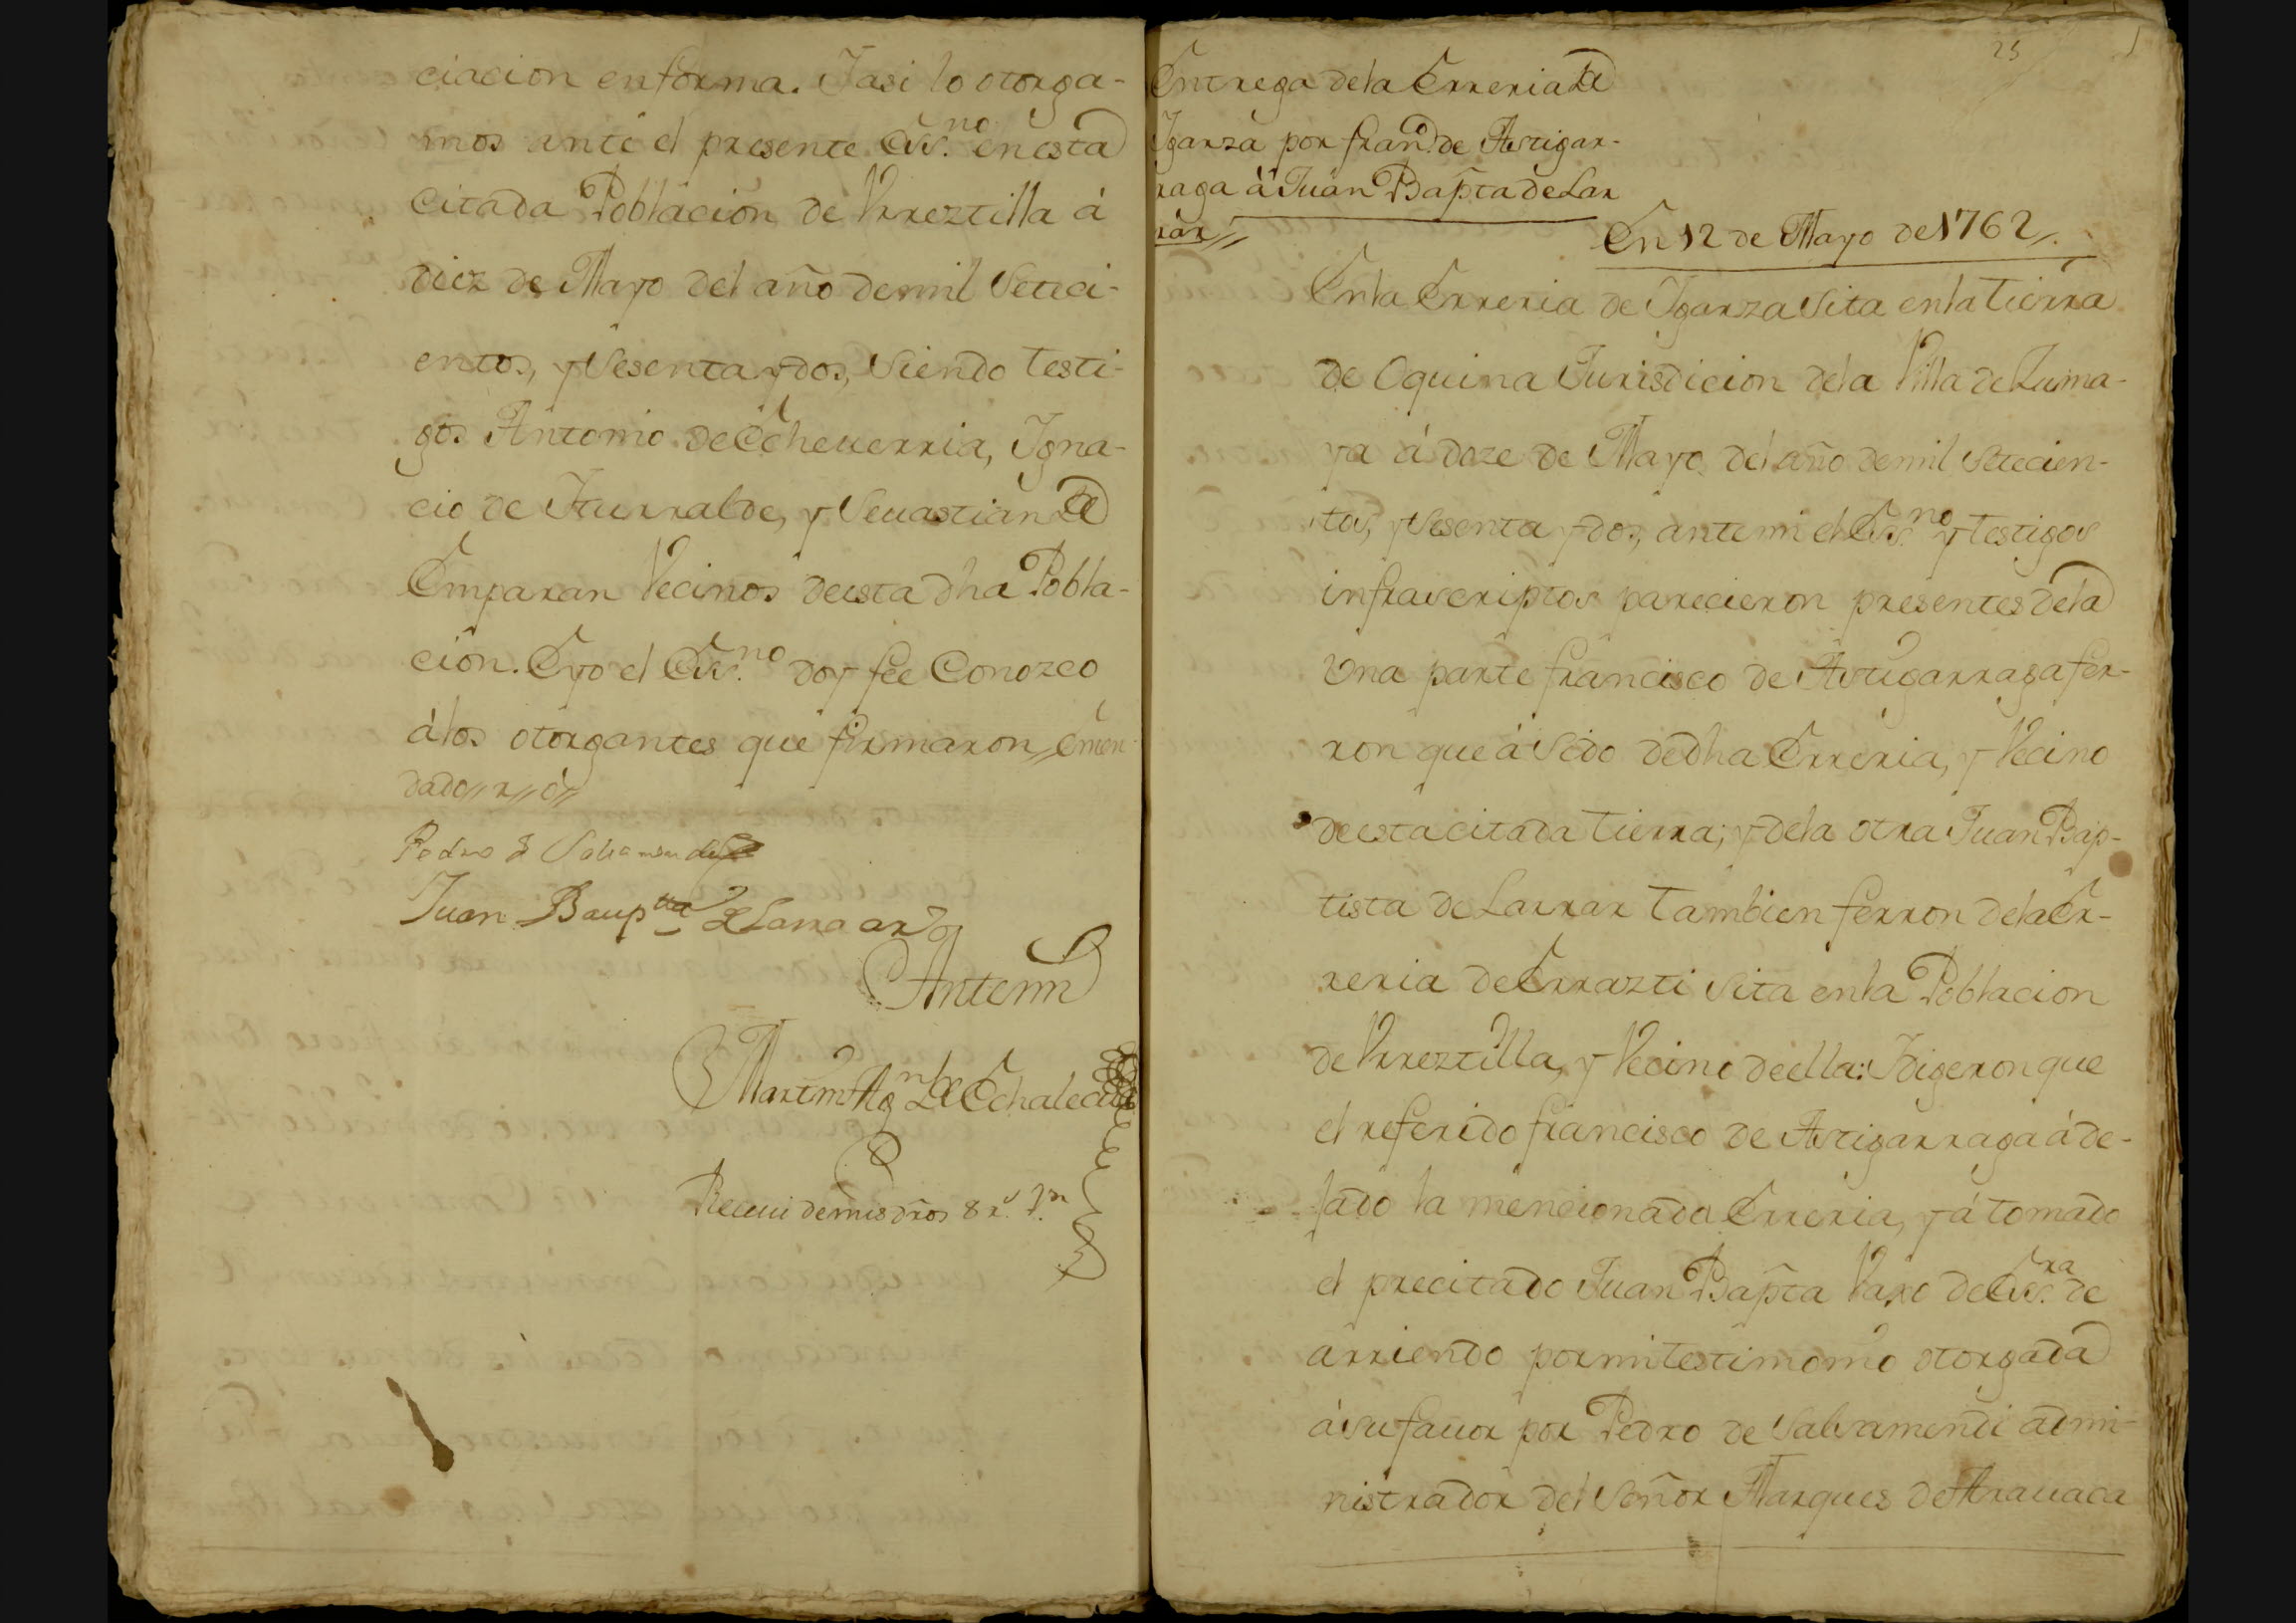 ciacion enforma. Y asi lo otorga-
mos ante el presente Ess.no en esta
Citada Poblacion de Vrreztilla á
diez de Mayo del año de mil Seteci-
entos, y Sesenta y dos, Siendo testi-
gos Antonio de Echeuerria, Igna-
cio de Iturralde, y Seuastian de
Emparan Vecinos de esta dha Pobla-
cion. E yo el Ess.no doy fee Conozco
á los otorgantes que firmaron // Emen-
dado // r // ó //
Pedro de
Juan Baup.tta de Larraar
Ante mi
Martin Ag.n de Echalecu
Receui de mis dros 8 r.s
25
Entrega de la Erreria de
Iganza por fran.co de Astigar-
raga á Juan Bapta de Lar
rar //
En 12 de Mayo de 1762 //.
En la Erreria de Iganza Sita en la tierra
de Oquina Jurisdicion de la Villa de Zuma-
ya á doze de Mayo del año de mil Setecien-
tos, y Sesenta y dos, ante mi el Ess.no y testigos
infrascriptos parecieron presentes de la
Una parte francisco de Astigarraga fer-
ron que á Sido de dha Erreria, y Vecino
de esta citada tierra; y de la otra Juan Bap-
tista de Larrar tambien ferron de la Er-
reria de Errazti Sita en la Poblacion
de Vrreztilla, y Vecino de ella: I digeron que
el referido francisco de Astigarraga á de-
jado la mencionada Erreria, y á tomado
el precitado Juan Bapta Vaxo de Ess.ra de
arriendo por mi testimonio otorgada
á su fauor por Pedro de Salsamendi admi-
nistrador del Señor Marques de Arauaca